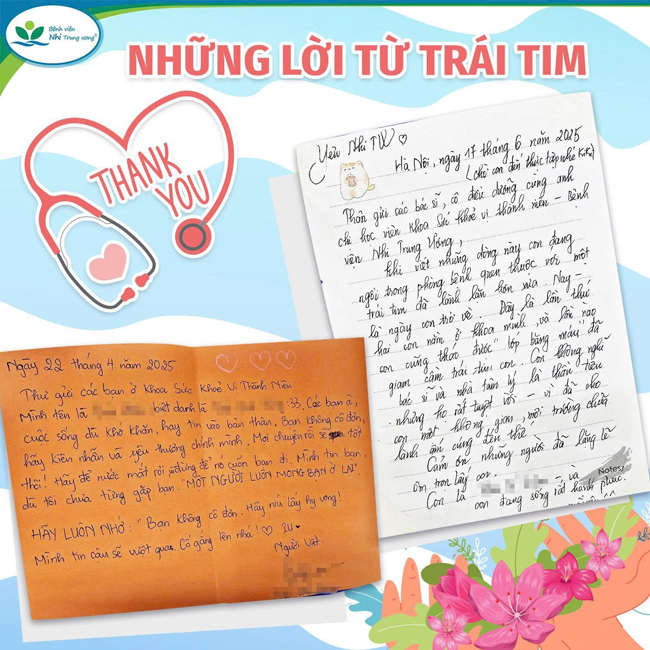 Bệnh viện
Nhi Trung ương
NHỮNG LỜI TỪ TRÁI TIM
THANK
YOU
Yêu Nhi TW ♡
Hà Nội, ngày 17 tháng 6 năm 2025
(chị con đến thực tập nhé KiKi)
Thân gửi các bác sĩ, cô điều dưỡng cùng anh
chị học viên Khoa Sức khoẻ vị thành niên – Bệnh
viện Nhi Trung Ương,
Khi viết những dòng này con đang
ngồi trong phòng bệnh quen thuộc với một
trái tim đã lành lặn hơn xưa. Nay –
là ngày con trở về. Đây là lần thứ
hai con nằm ở khoa mình và lần nào
con cũng tháo được "lớp băng máu" đã
giam cầm trái tim con. Con không nghĩ
bác sĩ và nhà tâm lý là thần tiên
nhưng họ rất tuyệt vời – vì đã cho
con một không gian, môi trường chữa
lành ấm cúng đến thế!
Cảm ơn những người đã lặng lẽ
ôm trọn lấy con.
Con là và
con đang sống rất hạnh phúc.
Notes!
Ngày 22 tháng 4 năm 2025
Thư gửi các bạn ở Khoa Sức Khoẻ Vị Thành Niên.
Mình tên là biệt danh là :33. Các bạn à,
cuộc sống dù khó khăn, hãy tin vào bản thân. Bạn không cô đơn,
hãy kiên nhẫn và yêu thương chính mình. Mọi chuyện rồi sẽ tốt
thôi! Hãy để nước mắt rơi đừng để nó cuốn bạn đi. Mình tin bạn,
dù tôi chưa từng gặp bạn. "MỘT NGƯỜI LUÔN MONG BẠN Ở LẠI"
HÃY LUÔN NHỚ: "Bạn không cô đơn. Hãy níu lấy hy vọng!
Mình tin cậu sẽ vượt qua. Cố gắng lên nhá! ♡ iu ♥
Người Viết